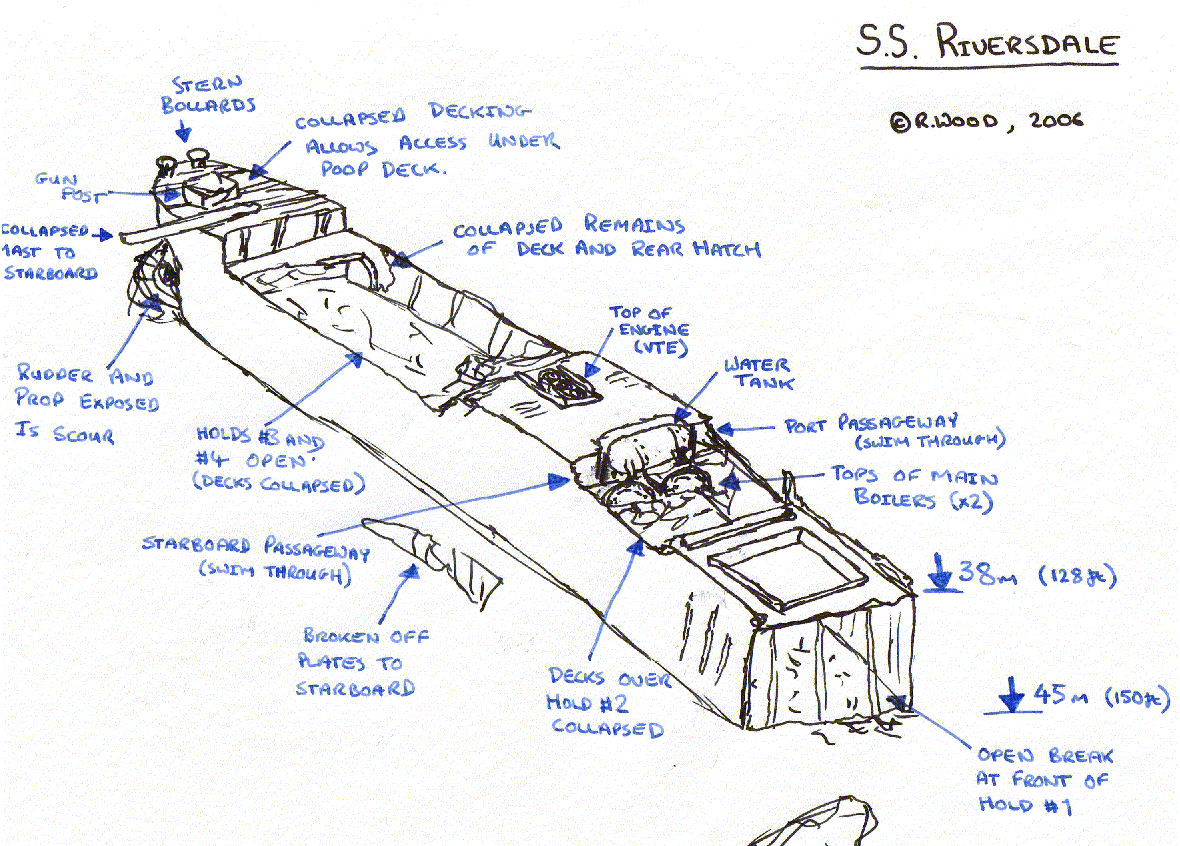 S.S. RIVERSDALE
©R.WOOD, 2006
STERN
BOLLARDS
COLLAPSED DECKING
ALLOWS ACCESS UNDER
POOP DECK.
GUN
POST
COLLAPSED
MAST TO
STARBOARD
COLLAPSED REMAINS
OF DECK AND REAR HATCH
TOP OF
ENGINE
(VTE)
WATER
TANK
PORT PASSAGEWAY
(SWIM THROUGH)
TOPS OF MAIN
BOILERS (x2)
RUDDER AND
PROP EXPOSED
IS SCOUR
HOLDS #3 AND
#4 OPEN
(DECKS COLLAPSED)
STARBOARD PASSAGEWAY
(SWIM THROUGH)
BROKEN OFF
PLATES TO
STARBOARD
DECKS OVER
HOLD #2
COLLAPSED
38m (128ft)
45m (150ft)
OPEN BREAK
AT FRONT OF
HOLD #1